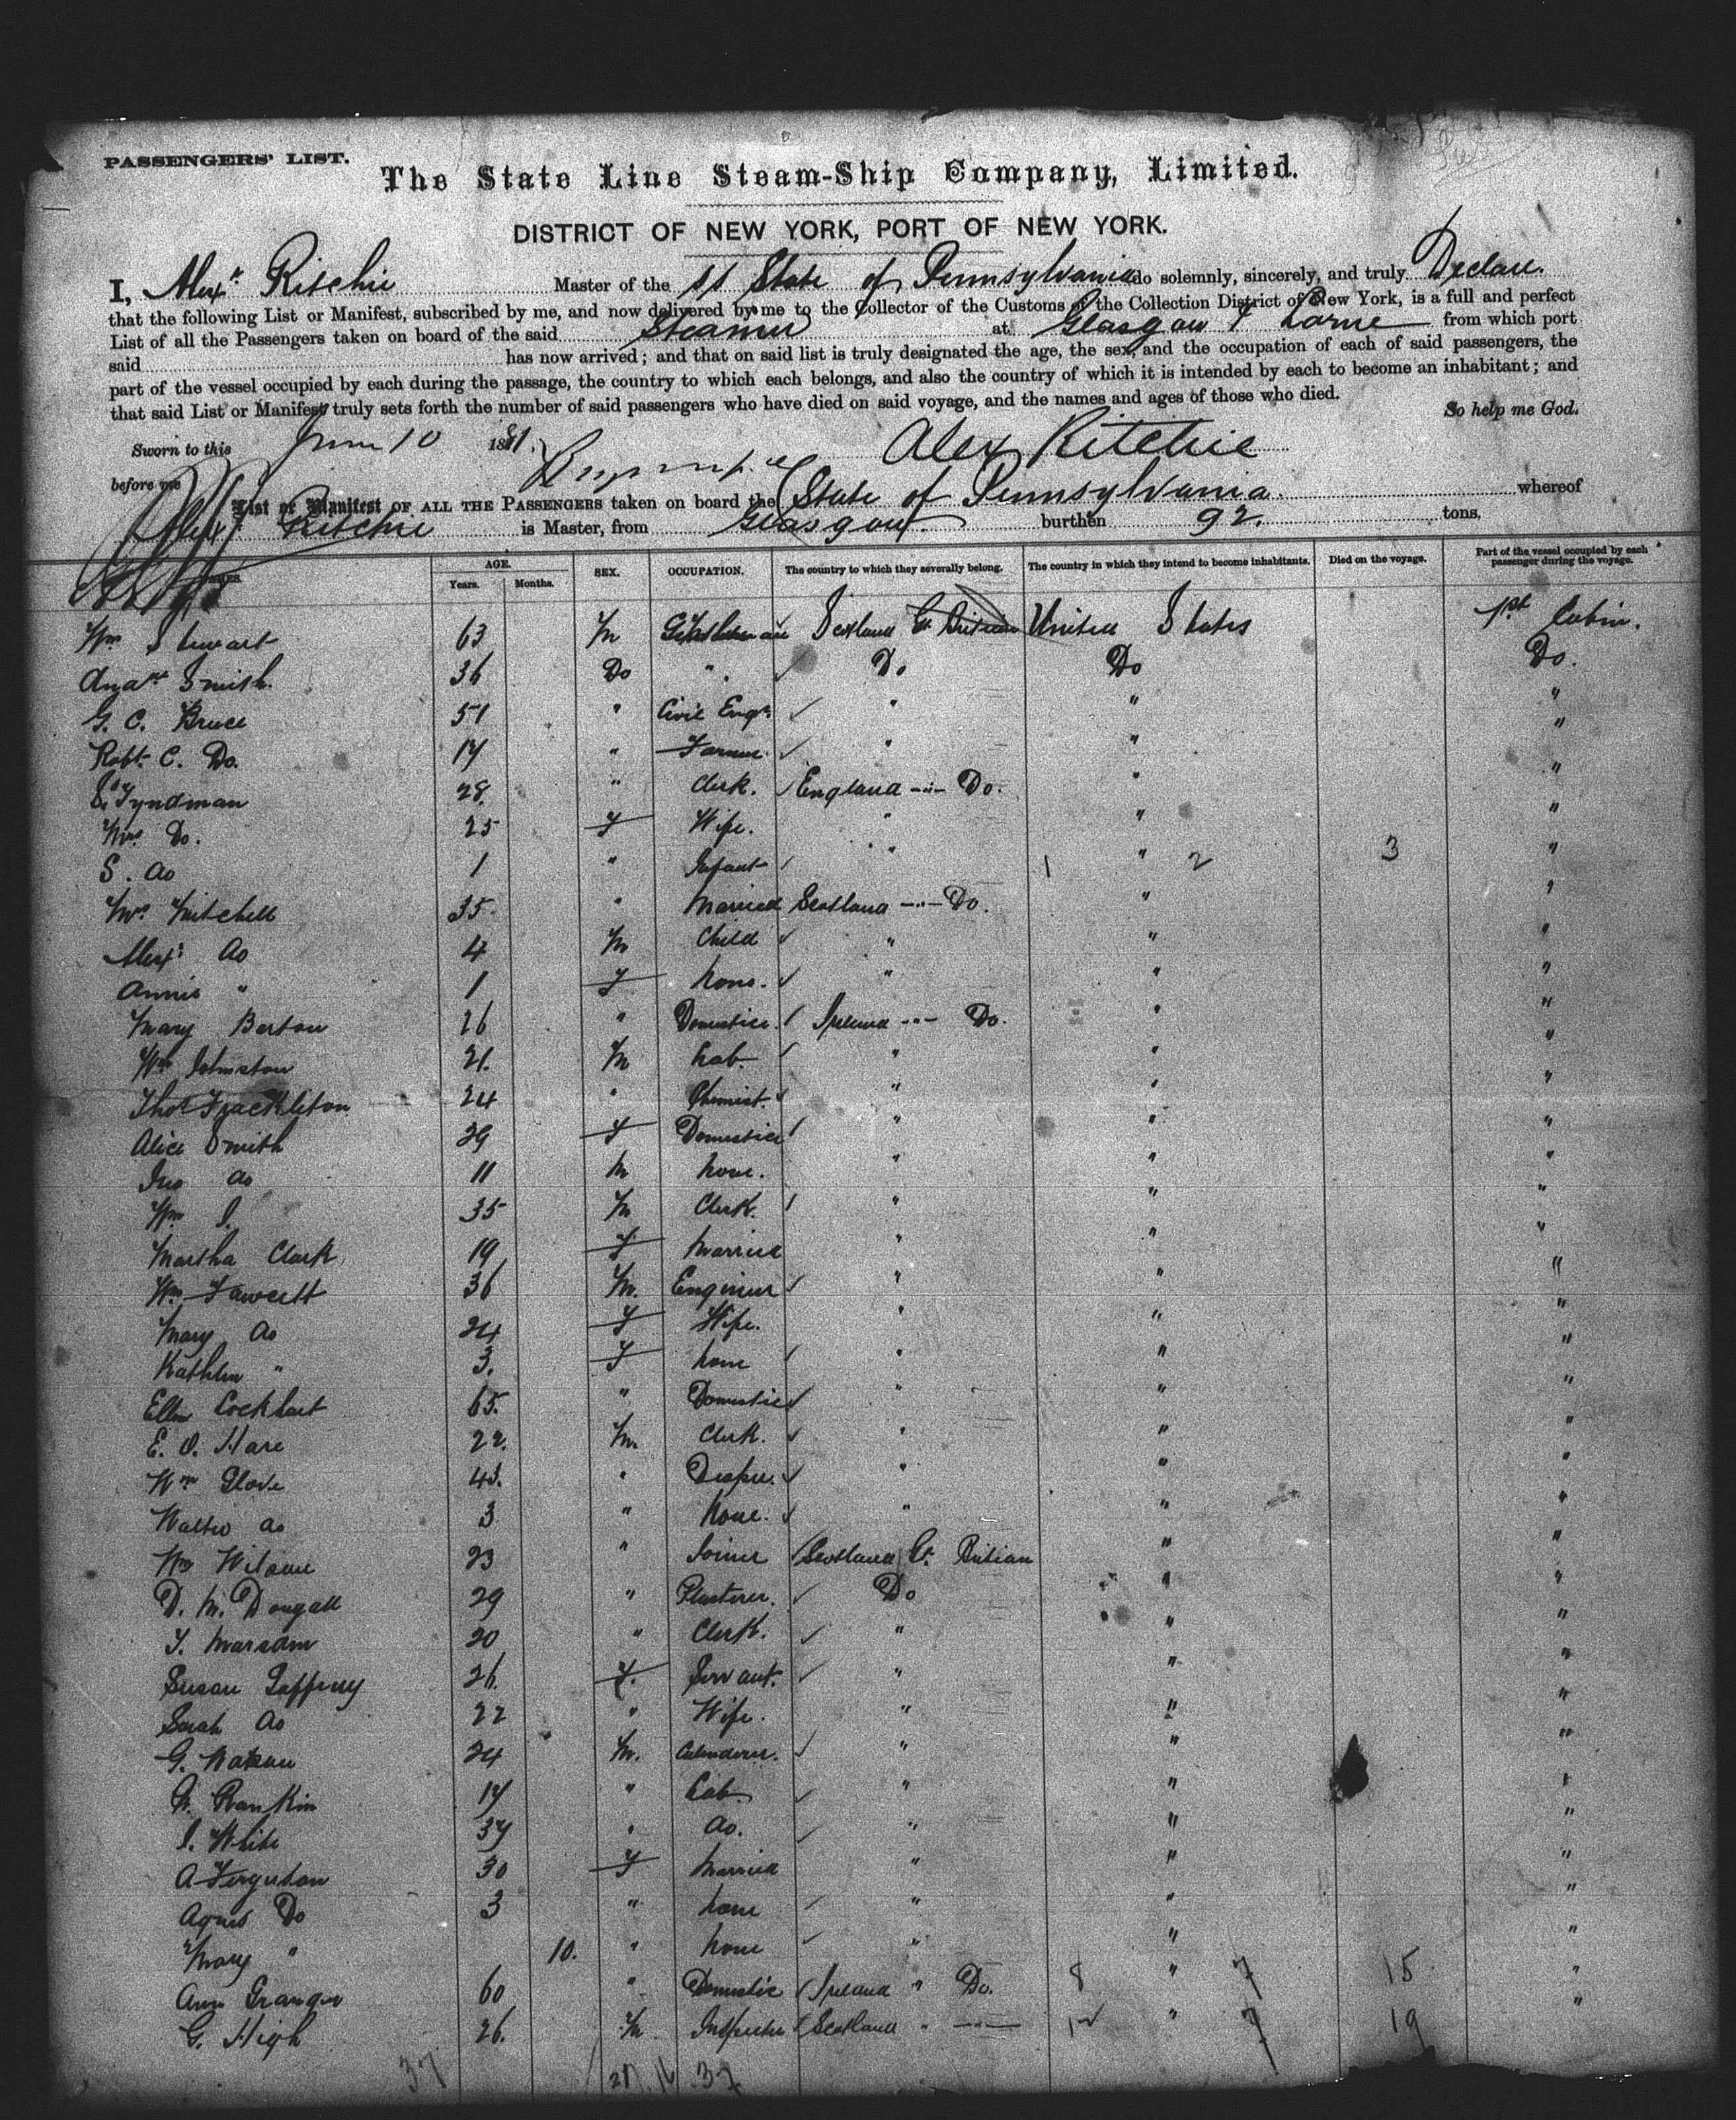 PASSENGERS' LIST.
The State Line Steam-Ship Company, Limited.
DISTRICT OF NEW YORK, PORT OF NEW YORK.
I, Alexr Ritchie Master of the SS State of Pennsylvania do solemnly, sincerely, and truly Declare.
that the following List or Manifest, subscribed by me, and now delivered by me to the Collector of the Customs of the Collection District of New York, is a full and perfect
List of all the Passengers taken on board of the said Steamer at Glasgow & Larne from which port
said has now arrived; and that on said list is truly designated the age, the sex, and the occupation of each of said passengers, the
part of the vessel occupied by each during the passage, the country to which each belongs, and also the country of which it is intended by each to become an inhabitant; and
that said List or Manifest truly sets forth the number of said passengers who have died on said voyage, and the names and ages of those who died.
So help me God.
Sworn to this June 10 1881. Alex Ritchie
before me
List or Manifest OF ALL THE PASSENGERS taken on board the State of Pennsylvania whereof
Alexr Ritchie is Master, from Glasgow burthen 92. tons.
NAMES. AGE. Years. Months. SEX. OCCUPATION. The country to which they severally belong. The country in which they intend to become inhabitants. Died on the voyage. Part of the vessel occupied by each passenger during the voyage.
Wm Stewart 63 M Gentleman Scotland Gt Britian United States 1st Cabin.
Smith. 36 Do " Do Do Do.
G. C. Bruce 51 " Civil Engr. " " "
Robt. C. Do. 17 " Farmer. " " "
S. Tyndman 28. " Clerk. England -"- Do. " "
Mrs Do. 25 F Wife. " " "
S. do 1 " Infant " 1 " 2 3 "
Mrs Mitchell 35. " Married Scotland -"- Do. " "
Alexr do 4 M Child " " "
Annie " 1 F None. " " "
Mary Barton 26 " Domestic. Ireland -"- Do. " "
Wm Johnston 21. M Lab. " " "
Thos Frackleton 24 " Chemist. " " "
Alice Smith 29 F Domestic " " "
Jno do 11 M None. " " "
Wm J. 35 M Clerk. " " "
Martha Clark 19 F Married " " "
Wm Fawcett 36 M. Engineer " " "
Mary do 24 F Wife. " " "
Kathleen " 3. F None " " "
Ellen Lockhart 65. " Domestic " " "
E. O. Hare 22. M. Clerk. " " "
Wm Glove 43. " Draper. " " "
Walter do 3 " None. " " "
Wm Wilson 23 " Joiner Scotland Gt. Britian " "
D. M. Dougall 29 " Plasterer. Do " "
T. Marsdom 20 " Clerk. " " "
Susan Gaffeny 26. F. Servant. " " "
Sarah do 22 " Wife. " " "
G. 24 M. Calenderer. " " "
Rankin 17 " Lab. " " "
J. White 37 " do. " " "
A Ferguson 30 F Married " " "
Agnes Do 3 " None " " "
Mary " 10. " None " " "
Ann Granger 60 " Domestic Ireland " Do. 8 " 7 15 "
G. High 26. M. Inspector Scotland " -"- 12 " 7 19 "
37 21 16 37